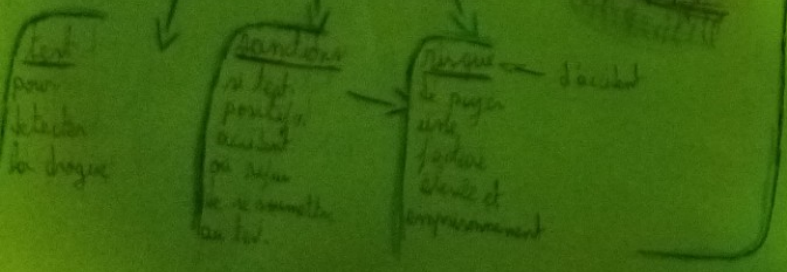 test
pour
detecter
la drogue
sanctions
si test
positif,
accident
ou refus
de se soumettre
au test.
risque
d'accident
de payer
une
facture
élevée et
emprisonnement